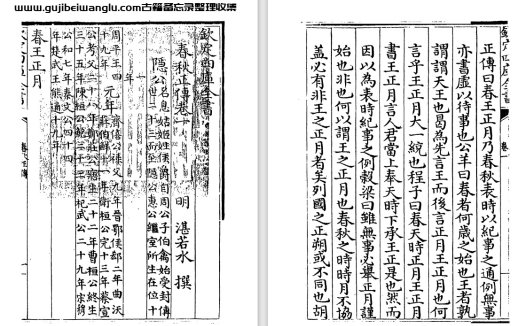 www.gujibeiwanglu.com古籍备忘录整理收集
欽定四庫全書
春秋正傳卷一
明 湛若水 撰
隱公名息姑姬姓侯爵自周公子伯禽始受封傳
世二十三而至隱公惠公繼室所生在位十
周平王四
十九年
元年
齊僖公祿父九年晉鄂侯郤二年曲沃
莊伯鱓十一年衛桓公完十三年蔡宣
公考父二十八年鄭莊公寤生二十二年曹桓公終生
三十五年陳桓公鮑二十三年杞武公二十九年宋穆
公和七年秦文公四十四
年楚武王熊通十九年
春王正月
正傳曰春王正月乃春秋表時以紀事之通例無事
亦書虛以待事也公羊曰春者何歲之始也王者孰
謂謂天王也曷為先言王而後言正月王正月也何
言乎王正月大一統也程子曰春天時正月王正月
書王正月言人君當上奉天時下承王正是也然而
因以為表時紀事之例穀梁曰雖無事必舉正月謹
始也非也何以謂王之正月也春秋之時時月不協
蓋必有非王之正月者矣列國之正朔或不同也胡